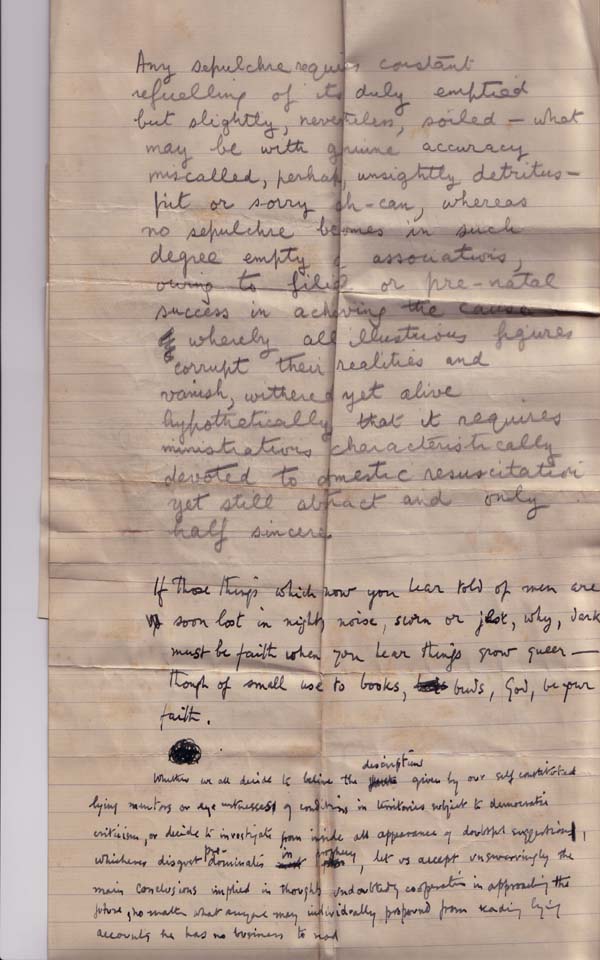 Any sepulchre requires constant
refuelling of its duly emptied
but slightly, nevertheless, soiled – what
may be with genuine accuracy
miscalled, perhaps, unsightly detritus-
pit or sorry ash-can, whereas
no sepulchre becomes in such
degree empty of associations,
owing to filial or pre-natal
success in achieving the cause
whereby all illustrious figures
corrupt their realities and
vanish, withered yet alive
hypothetically that it requires
ministrations characteristically
devoted to domestic resuscitation
yet still abstract and only
half sincere.
If those things which now you hear told of men are
soon lost in nighty noise, scorn or jest, why, dark
must be faith when you hear things grow queer –
though of small use to books, buds, God, be your
faith.
description
Whether we all decide to believe the given by our self constituted
lying mentors or eye witnesses of conditions in territories subject to democratic
criticism, or decide to investigate from inside all appearance of doubtful suggestions,
pre- in prophecy
whichever disgust dominates, let us accept unswervingly the
main conclusions implied in thoughts undoubtedly cooperative in approaching the
future, no matter what anyone may individually propound from reading lying
accounts he has no business to read